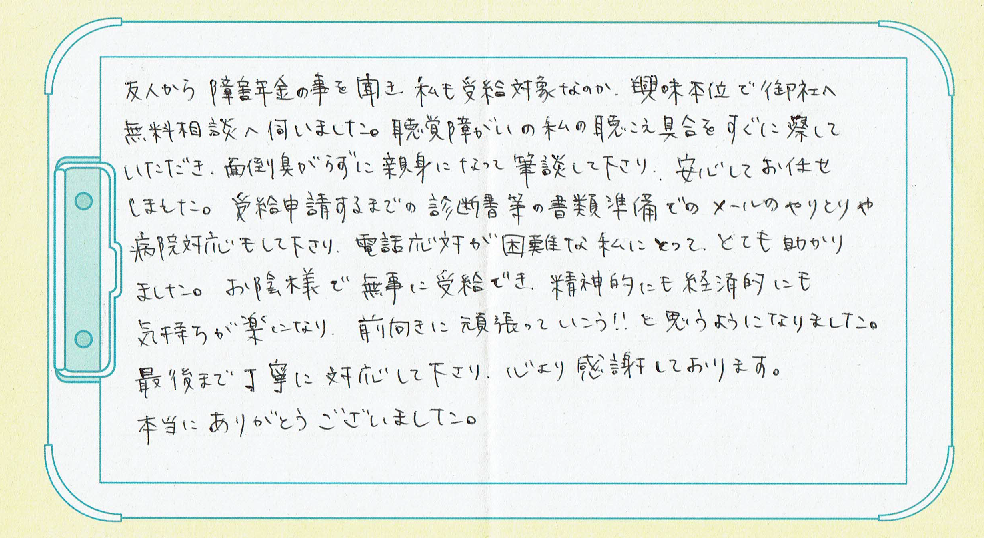 友人から障害年金の事を聞き、私も受給対象なのか、興味本位で御社へ
無料相談へ伺いました。聴覚障がいの私の聴こえ具合をすぐに察して
いただき、面倒臭がらずに親身になって筆談して下さり、安心してお任せ
しました。受給申請するまでの診断書等の書類準備でのメールのやりとりや
病院対応もして下さり、電話応対が困難な私にとって、とても助かり
ました。お陰様で無事に受給でき、精神的にも経済的にも
気持ちが楽になり、前向きに頑張っていこう!!と思うようになりました。
最後まで丁寧に対応して下さり、心より感謝しております。
本当にありがとうございました。